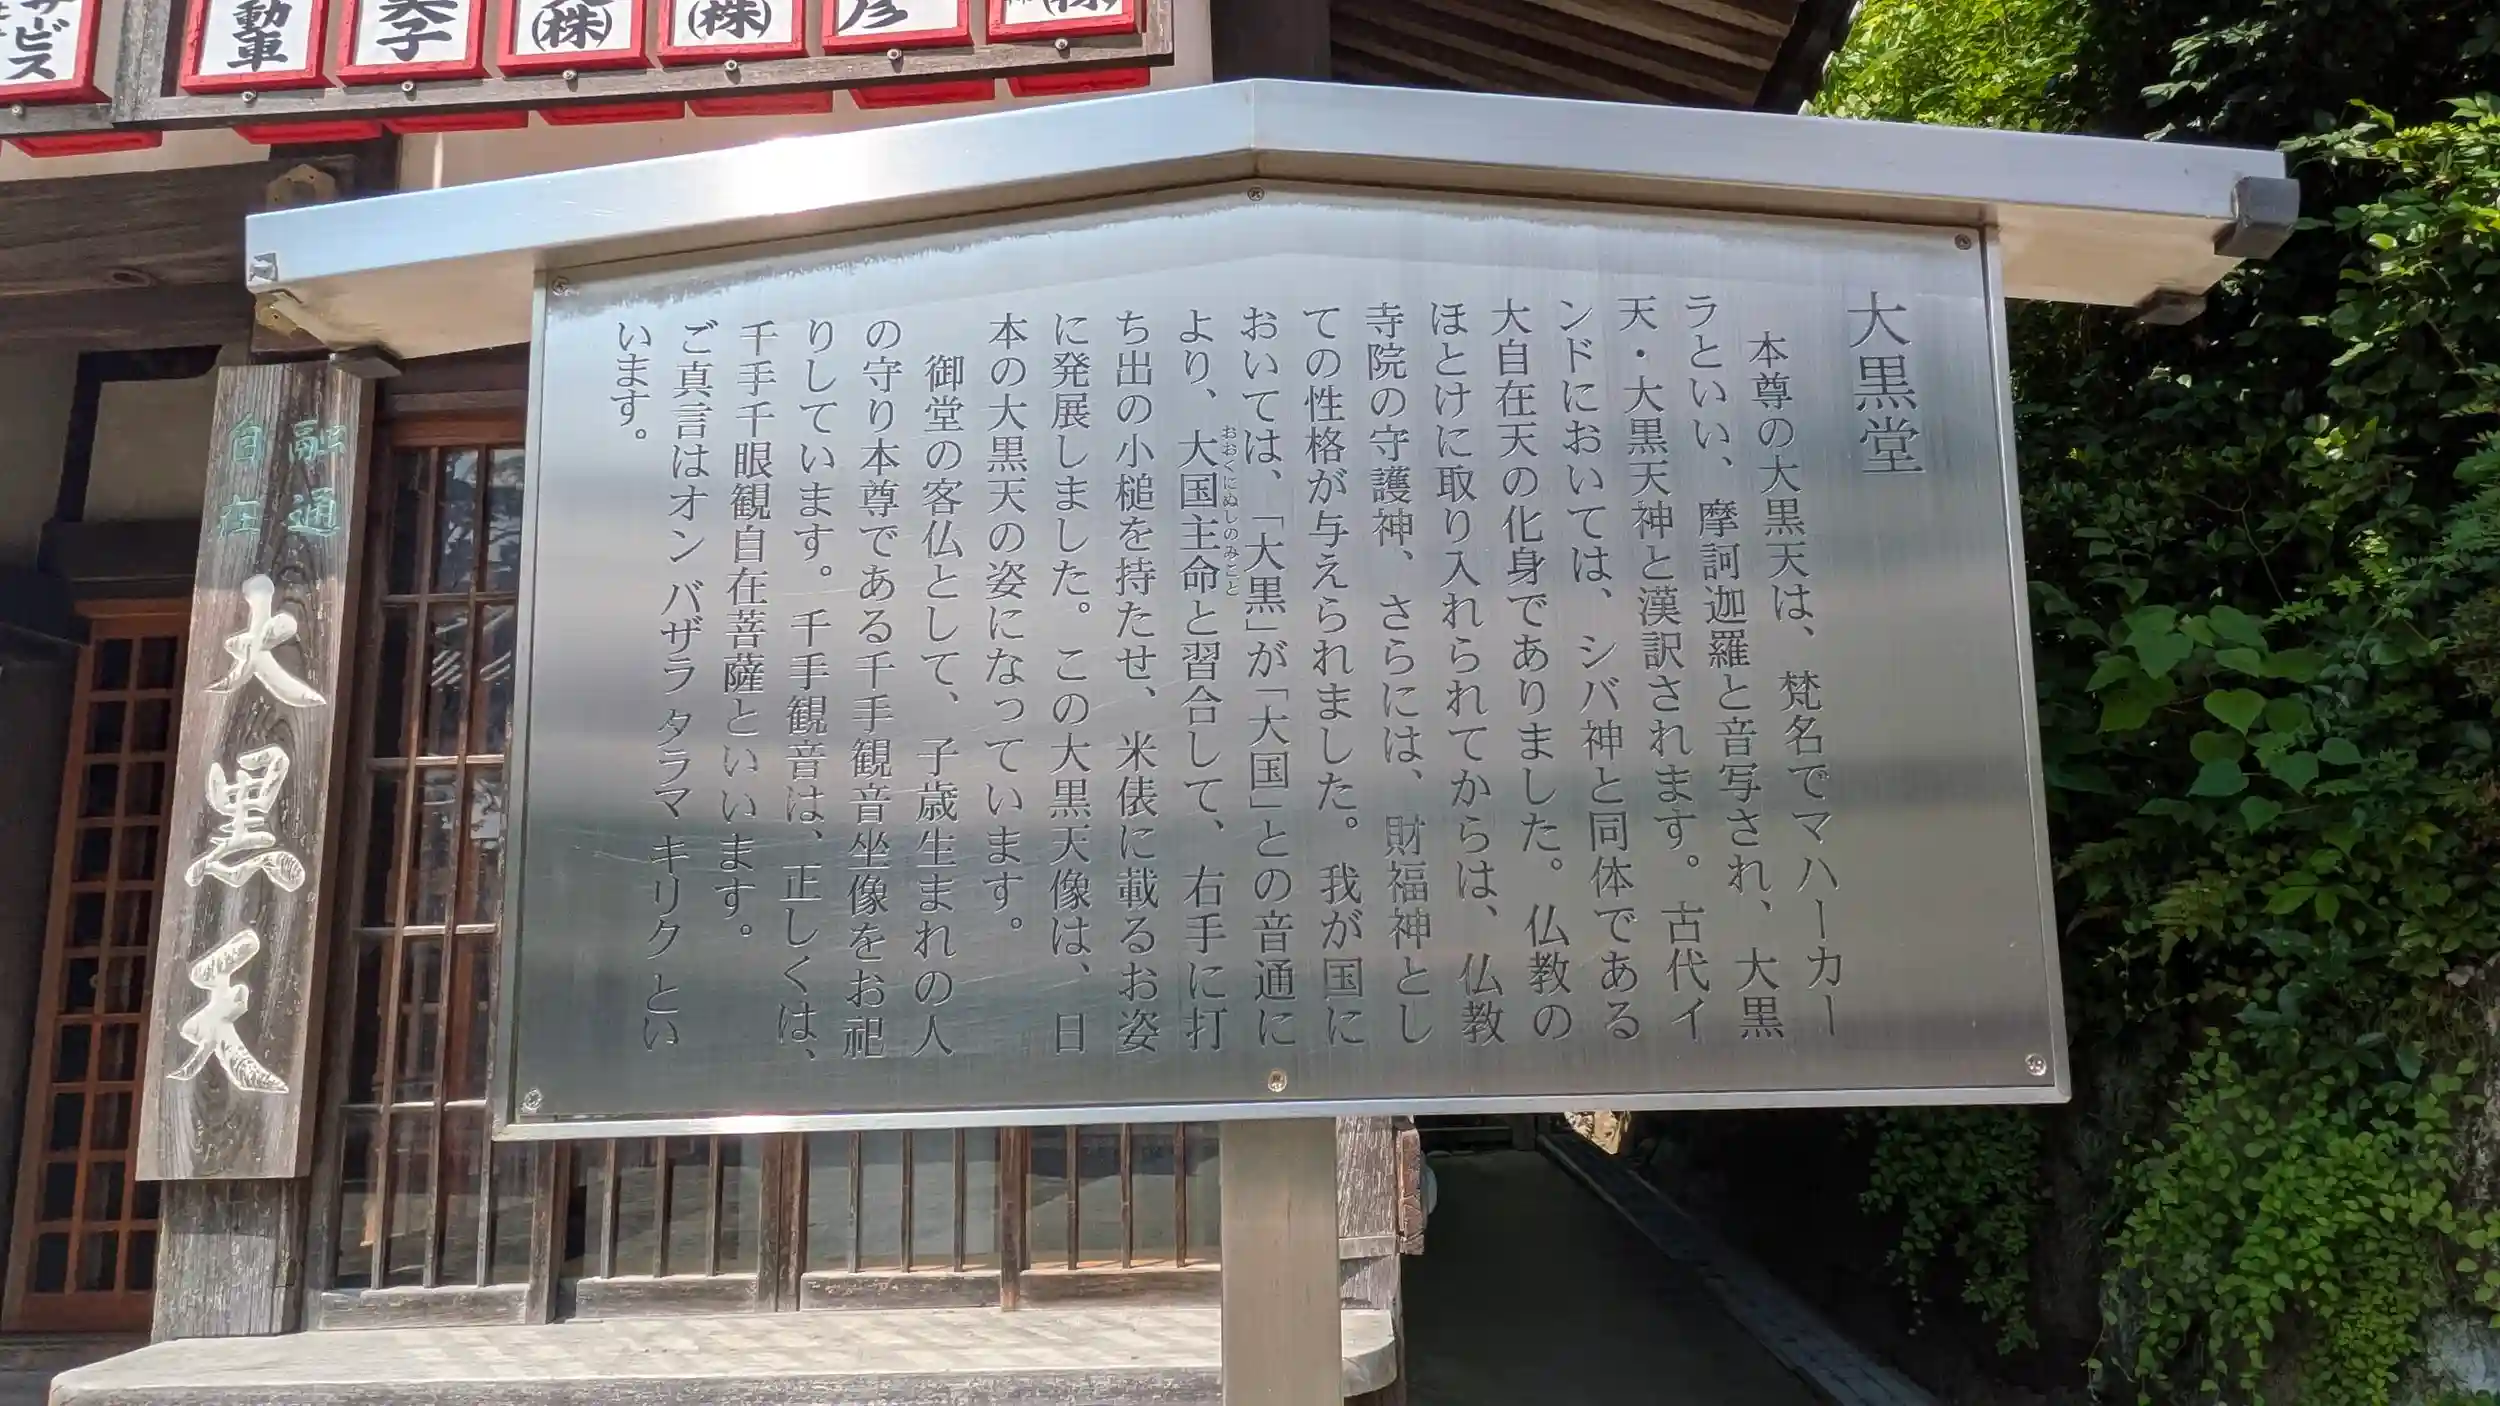 大黒堂
本尊の大黒天は、梵名でマハーカー
ラといい、摩訶迦羅と音写され、大黒
天・大黒天神と漢訳されます。古代イ
ンドにおいては、シバ神と同体である
大自在天の化身でありました。仏教の
ほとけに取り入れられてからは、仏教
寺院の守護神、さらには、財福神とし
ての性格が与えられました。我が国に
おいては、「大黒」が「大国」との音通に
より、大国主命と習合して、右手に打
おおくにぬしのみこと
ち出の小槌を持たせ、米俵に載るお姿
に発展しました。この大黒天像は、日
本の大黒天の姿になっています。
御堂の客仏として、子歳生まれの人
の守り本尊である千手観音坐像をお祀
りしています。千手観音は、正しくは、
千手千眼観自在菩薩といいます。
ご真言はオン バザラ タラマ キリク とい
います。
融通
自在
大黒天
(株)
(株)
彦
(株)
美子
動車
サービス